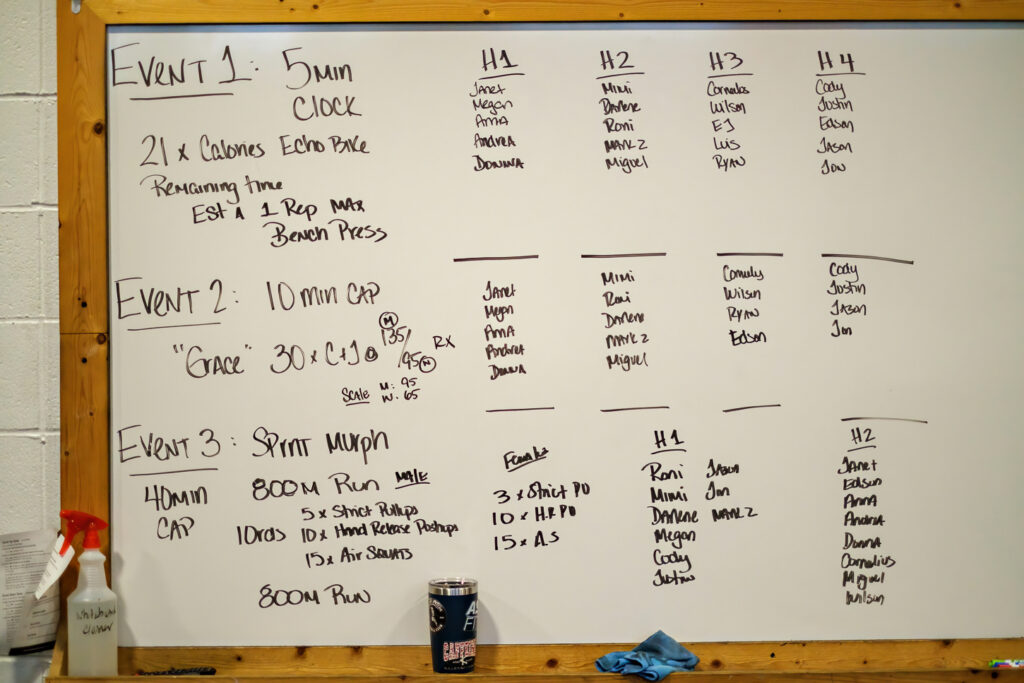 EVENT 1: 5 MIN
CLOCK
21 x Calories Echo Bike
Remaining time
Est A 1 Rep MAX
Bench Press
H1
Janet
Megan
Anna
Andrea
Donna
H2
Mimi
Darlene
Roni
Mark Z
Miguel
H3
Cornelius
Wilson
EJ
Luis
Ryan
H4
Cody
Justin
Edson
Jason
Jon
EVENT 2: 10 min CAP
"Grace" 30 x C+J @ 135/95 RX
M
W
Scale M: 95
W: 65
Janet
Megan
Anna
Andrea
Donna
Mimi
Roni
Darlene
Mark Z
Miguel
Wilson
Ryan
Edson
Cody
Justin
Jason
Jon
EVENT 3: SPrint Murph
40 MIN
CAP
800M Run MALE
10rds
5 x Strict Pullups
10 x Hand Release Pushups
15 x Air Squats
800M Run
Female
3 x Strict PU
10 x H.R PU
15 x A.S
H1
Roni Jason
Mimi Jon
Darlene Mark Z
Megan
Cody
Justin
H2
Janet
Edson
Anna
Andrea
Donna
Cornelius
Miguel
Wilson
Cleaner